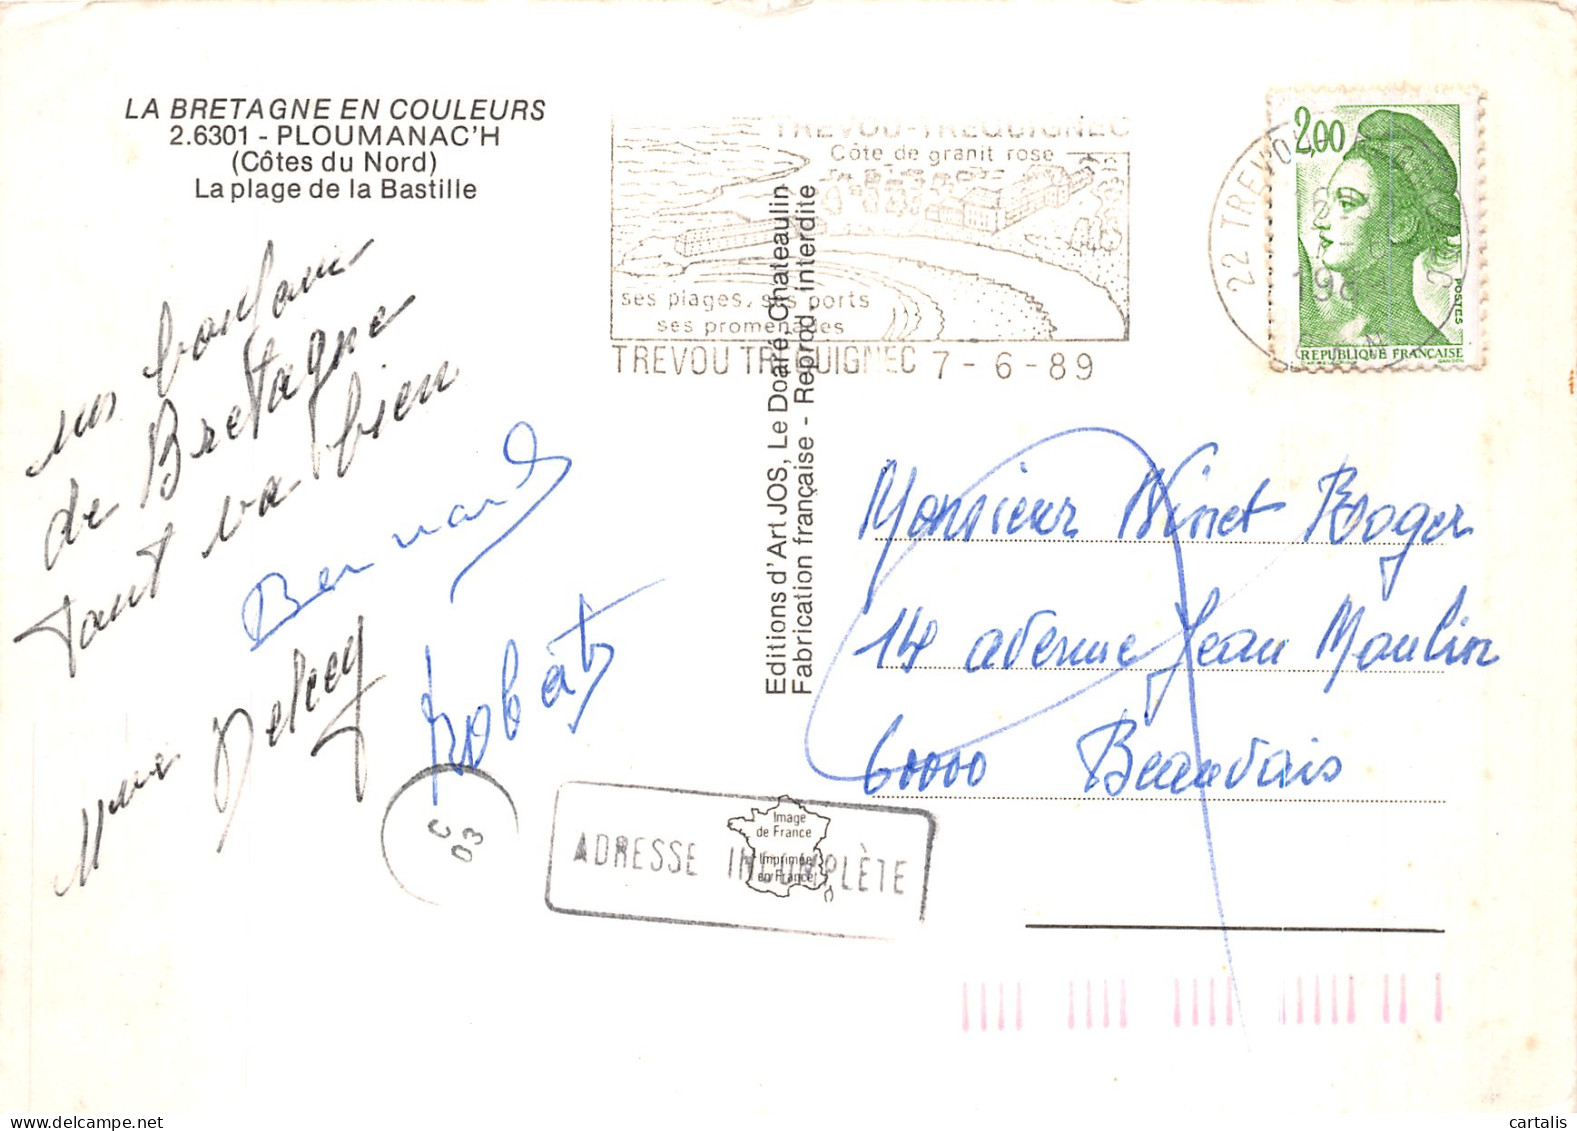 LA BRETAGNE EN COULEURS
2.6301 - PLOUMANAC'H
(Côtes du Nord)
La plage de la Bastille
un bonjour
de Bretagne
tout va bien
Bernard
Mme Delcey
Robert
C
03
TREVOU-TREGUIGNEC
Côte de granit rose
ses plages, ses ports
ses promenades
TREVOU TREGUIGNEC 7-6-89
Editions d'Art JOS, Le Doaré, Chateaulin
Fabrication française - Reprod. interdite
2,00
POSTES
REPUBLIQUE FRANÇAISE
GANDON
22 TREVOU
Monsieur Winet Roger
14 avenue Jean Moulin
60000 Beauvais
ADRESSE INCOMPLÈTE
Image
de France
Imprimée
en France
cartalis